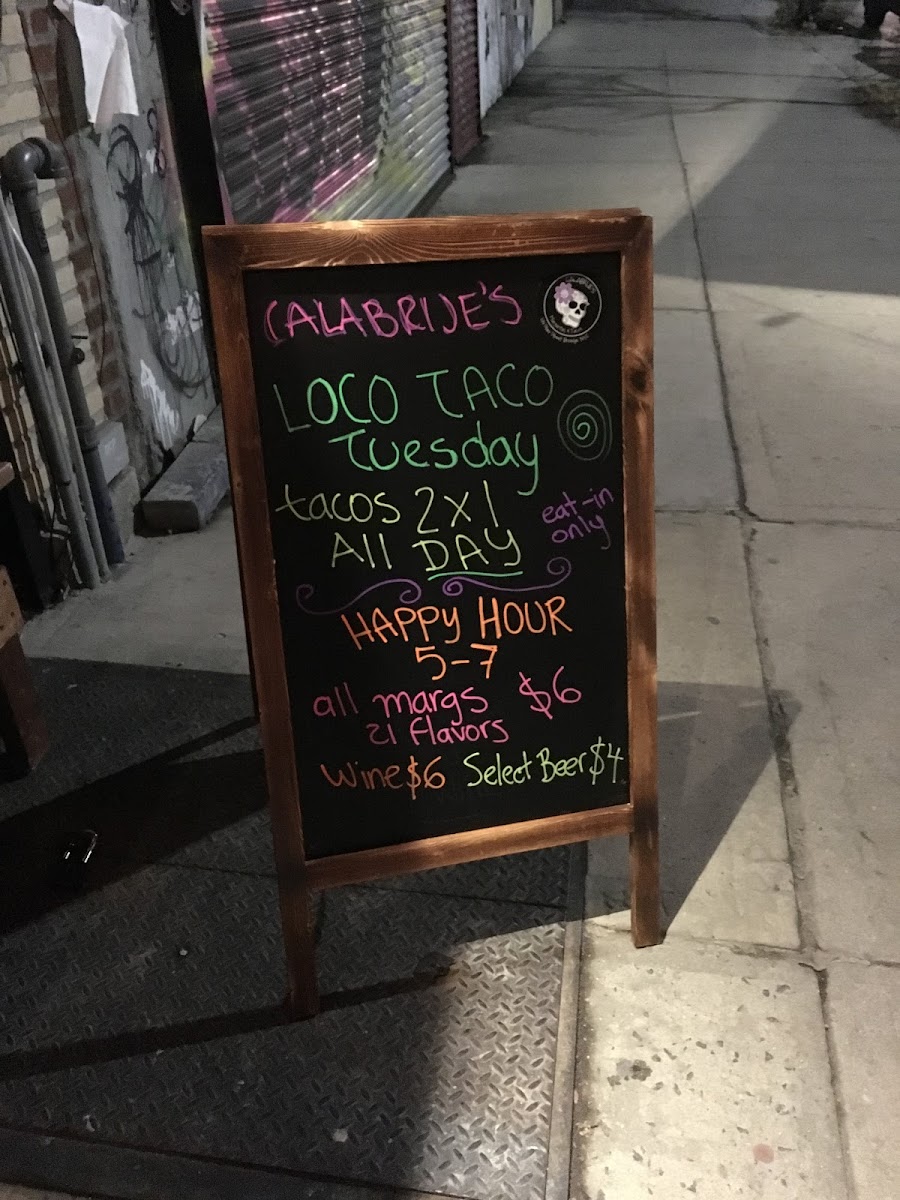 CALABRIJE'S
LOCO TACO
Tuesday
tacos 2x1
All DAY
eat-in
only
HAPPY HOUR
5-7
all margs $6
21 flavors
Wine $6 Select Beer $4